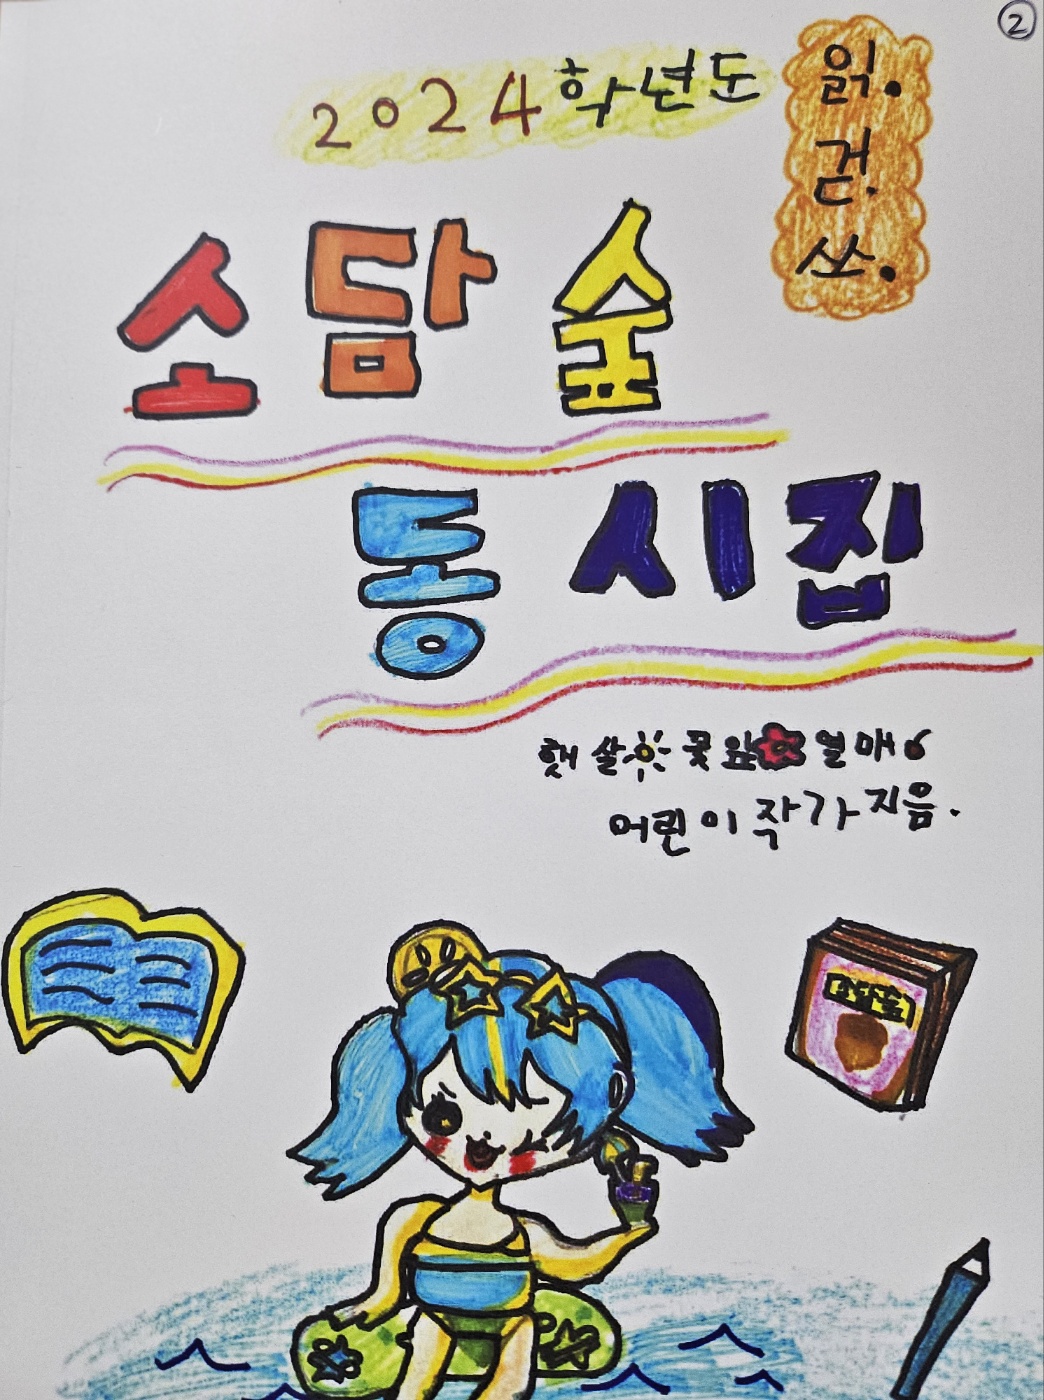 ②
2024학년도
읽.
걷.
쓰.
소담숲
동시집
햇살 꽃잎 열매
어린이 작가 지음.